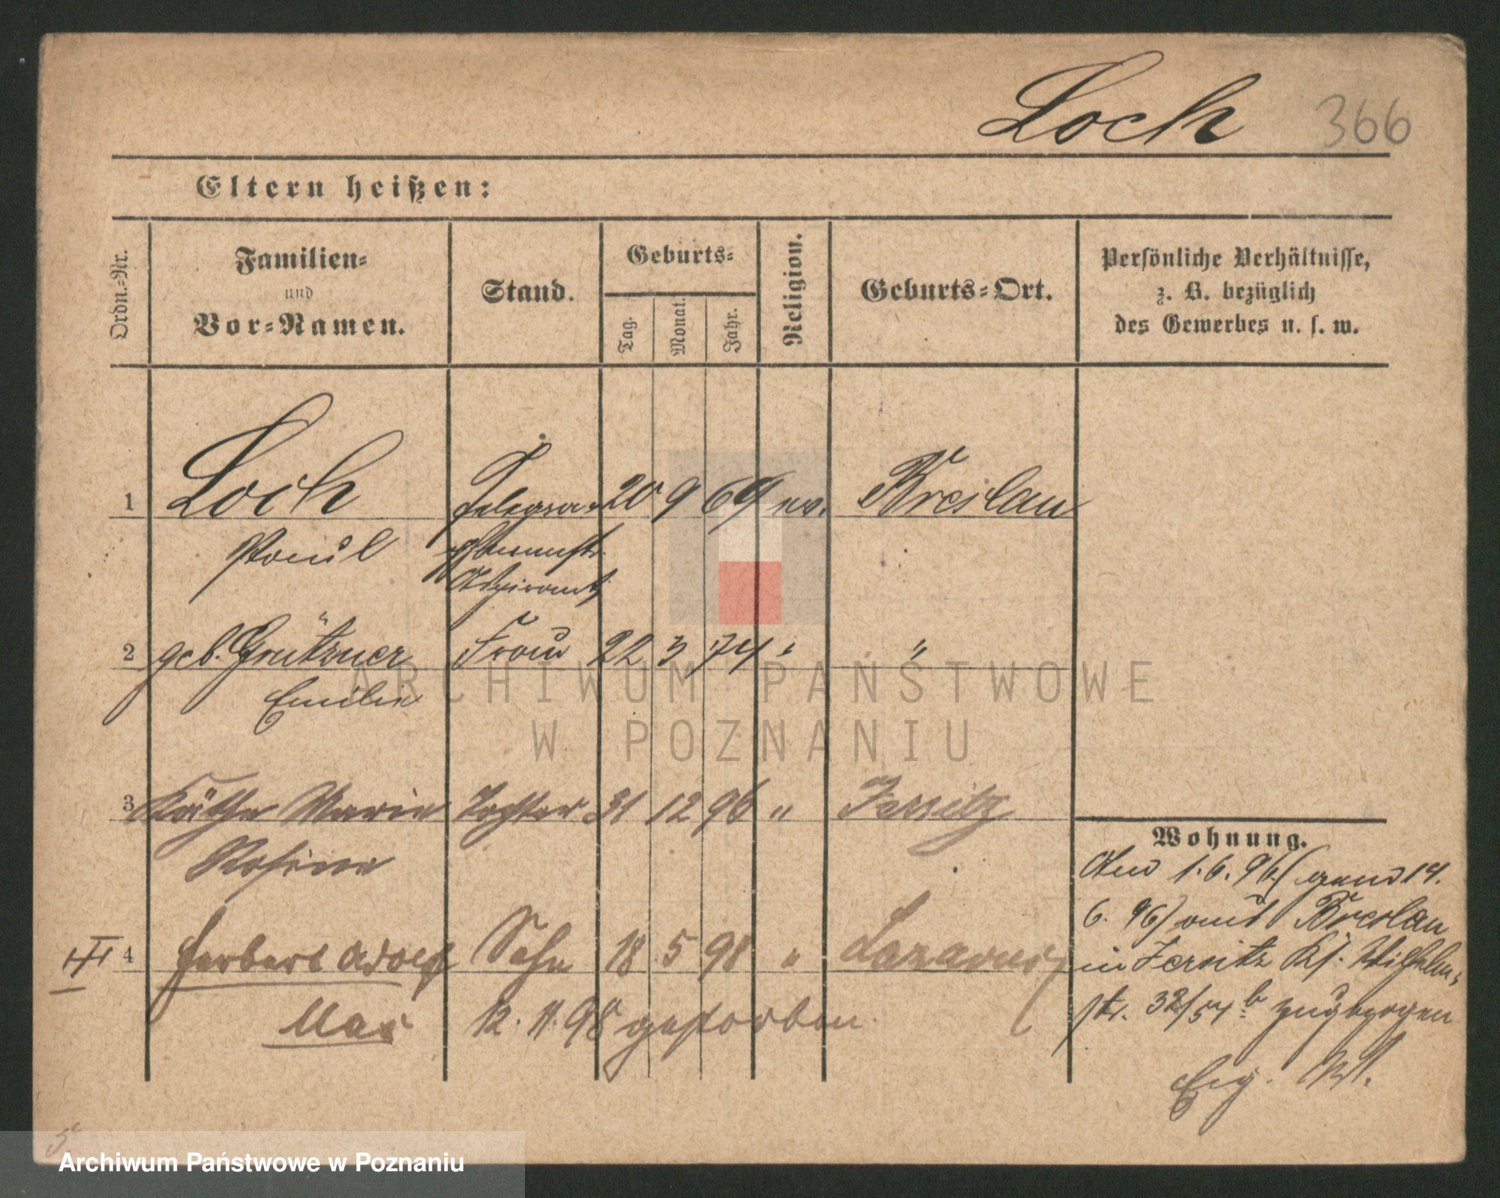 Loch 366
Eltern heißen:
Ordn.-Nr.
Familien-
und
Vor-Namen.
Stand.
Geburts-
Tag.
Monat.
Jahr.
Religion.
Geburts-Ort.
Persönliche Verhältnisse,
z. B. bezüglich
des Gewerbes u. s. w.
1 Loch Telegra- 20 9 69 ev. Breslau
Paul
Aspirant
2 geb. Grützner Frau 22 3 74 " "
Emilie
3 Käthe Marie Tochter 31 12 96 " Jersitz
Rosina
4 Herbert Adolf Sohn 18 5 98 " Lazarus
Max 12. 11. 98 gestorben
Wohnung.
Am 1. 6. 96 (gem 14.
6. 96) aus Breslau
in Jersitz Kf. Wilhelm-
str. 32/54 b zugezogen
ARCHIWUM PAŃSTWOWE
W POZNANIU
Archiwum Państwowe w Poznaniu